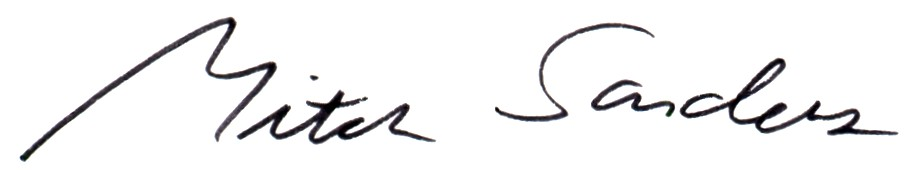 Mitch Sanders